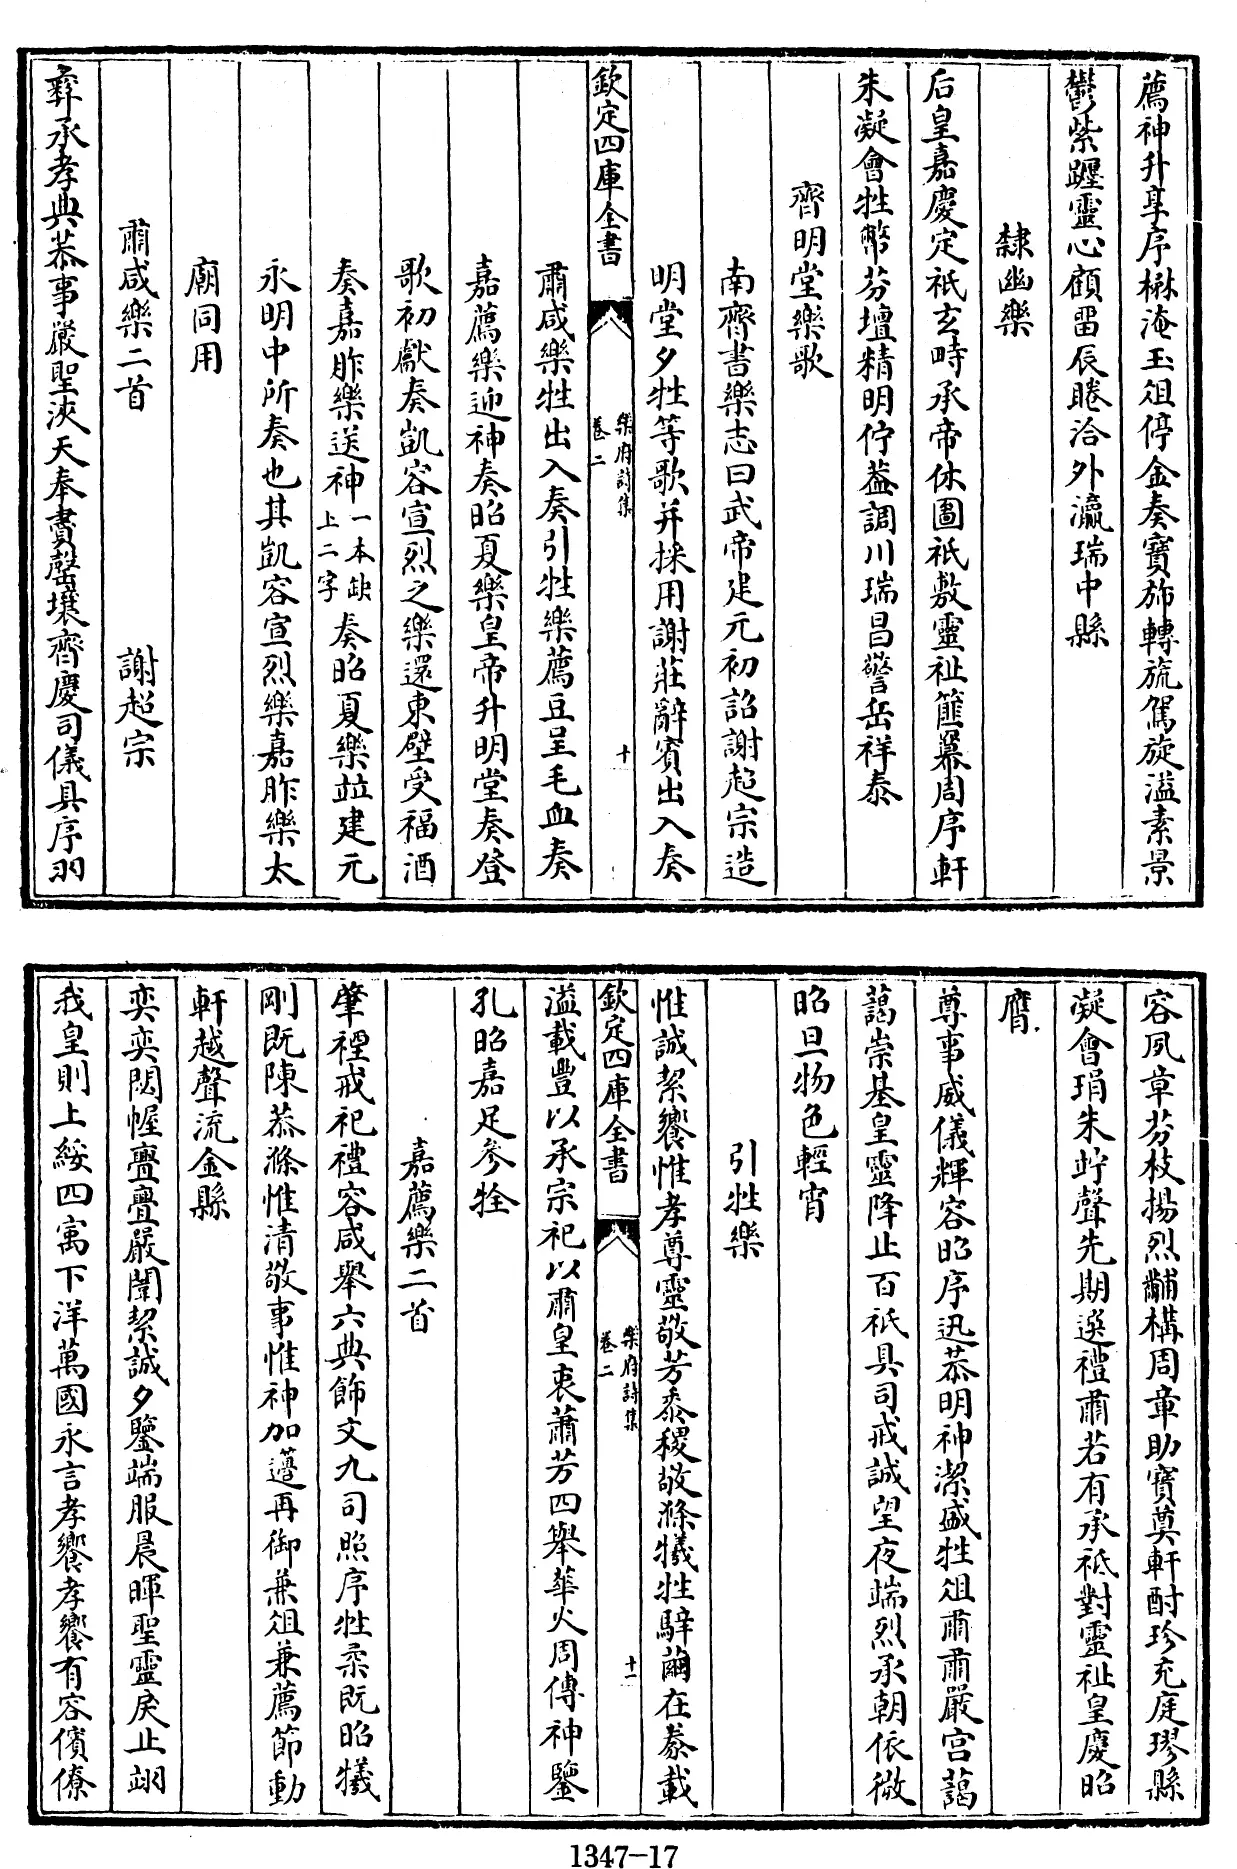 薦神升享序楙淹玉俎停金奏寶斾轉旒駕旋溢素景
鬱紫躔靈心顧留辰睠洽外瀛瑞中縣
隸幽樂
后皇嘉慶定祇玄畤承帝休圖祇敷靈祉篚羃周序軒
朱凝會牲幣芬壇精明佇葢調川瑞昌警岳祥泰
齊明堂樂歌
南齊書樂志曰武帝建元初詔謝超宗造
明堂夕牲等歌并採用謝莊辭賓出入奏
欽定四庫全書
樂府詩集
卷二
十
肅咸樂牲出入奏引牲樂薦豆呈毛血奏
嘉薦樂迎神奏昭夏樂皇帝升明堂奏登
歌初獻奏凱容宣烈之樂還東壁受福酒
奏嘉胙樂送神一本缺上二字奏昭夏樂竝建元
永明中所奏也其凱容宣烈樂嘉胙樂太
廟同用
肅咸樂二首 謝超宗
彛承孝典恭事嚴聖浹天奉賮罄壤齊慶司儀具序羽
容夙章芬枝揚烈黼構周章助寶奠軒酎珍充庭璆縣
凝會琄朱竚聲先期選禮肅若有承祗對靈祉皇慶昭
膺
尊事威儀輝容昭序迅恭明神潔盛牲俎肅肅嚴宮藹
藹崇基皇靈降止百祇具司戒誠望夜端烈承朝依微
昭旦物色輕宵
引牲樂
惟誠絜饗惟孝尊靈敬芳黍稷敬滌犧牲騂繭在豢載
欽定四庫全書
樂府詩集
卷二
十一
溢載豐以承宗祀以肅皇衷蕭芳四舉華火周傳神鑒
孔昭嘉足參牷
嘉薦樂二首
肇禋戒祀禮容咸舉六典飾文九司照序牲柔既昭犧
剛既陳恭滌惟清敬事惟神加籩再御兼俎兼薦節動
軒越聲流金縣
奕奕閟幄亹亹嚴闈絜誠夕鑒端服晨暉聖靈戾止翊
我皇則上綏四㝢下洋萬國永言孝饗孝饗有容儐僚
1347-17